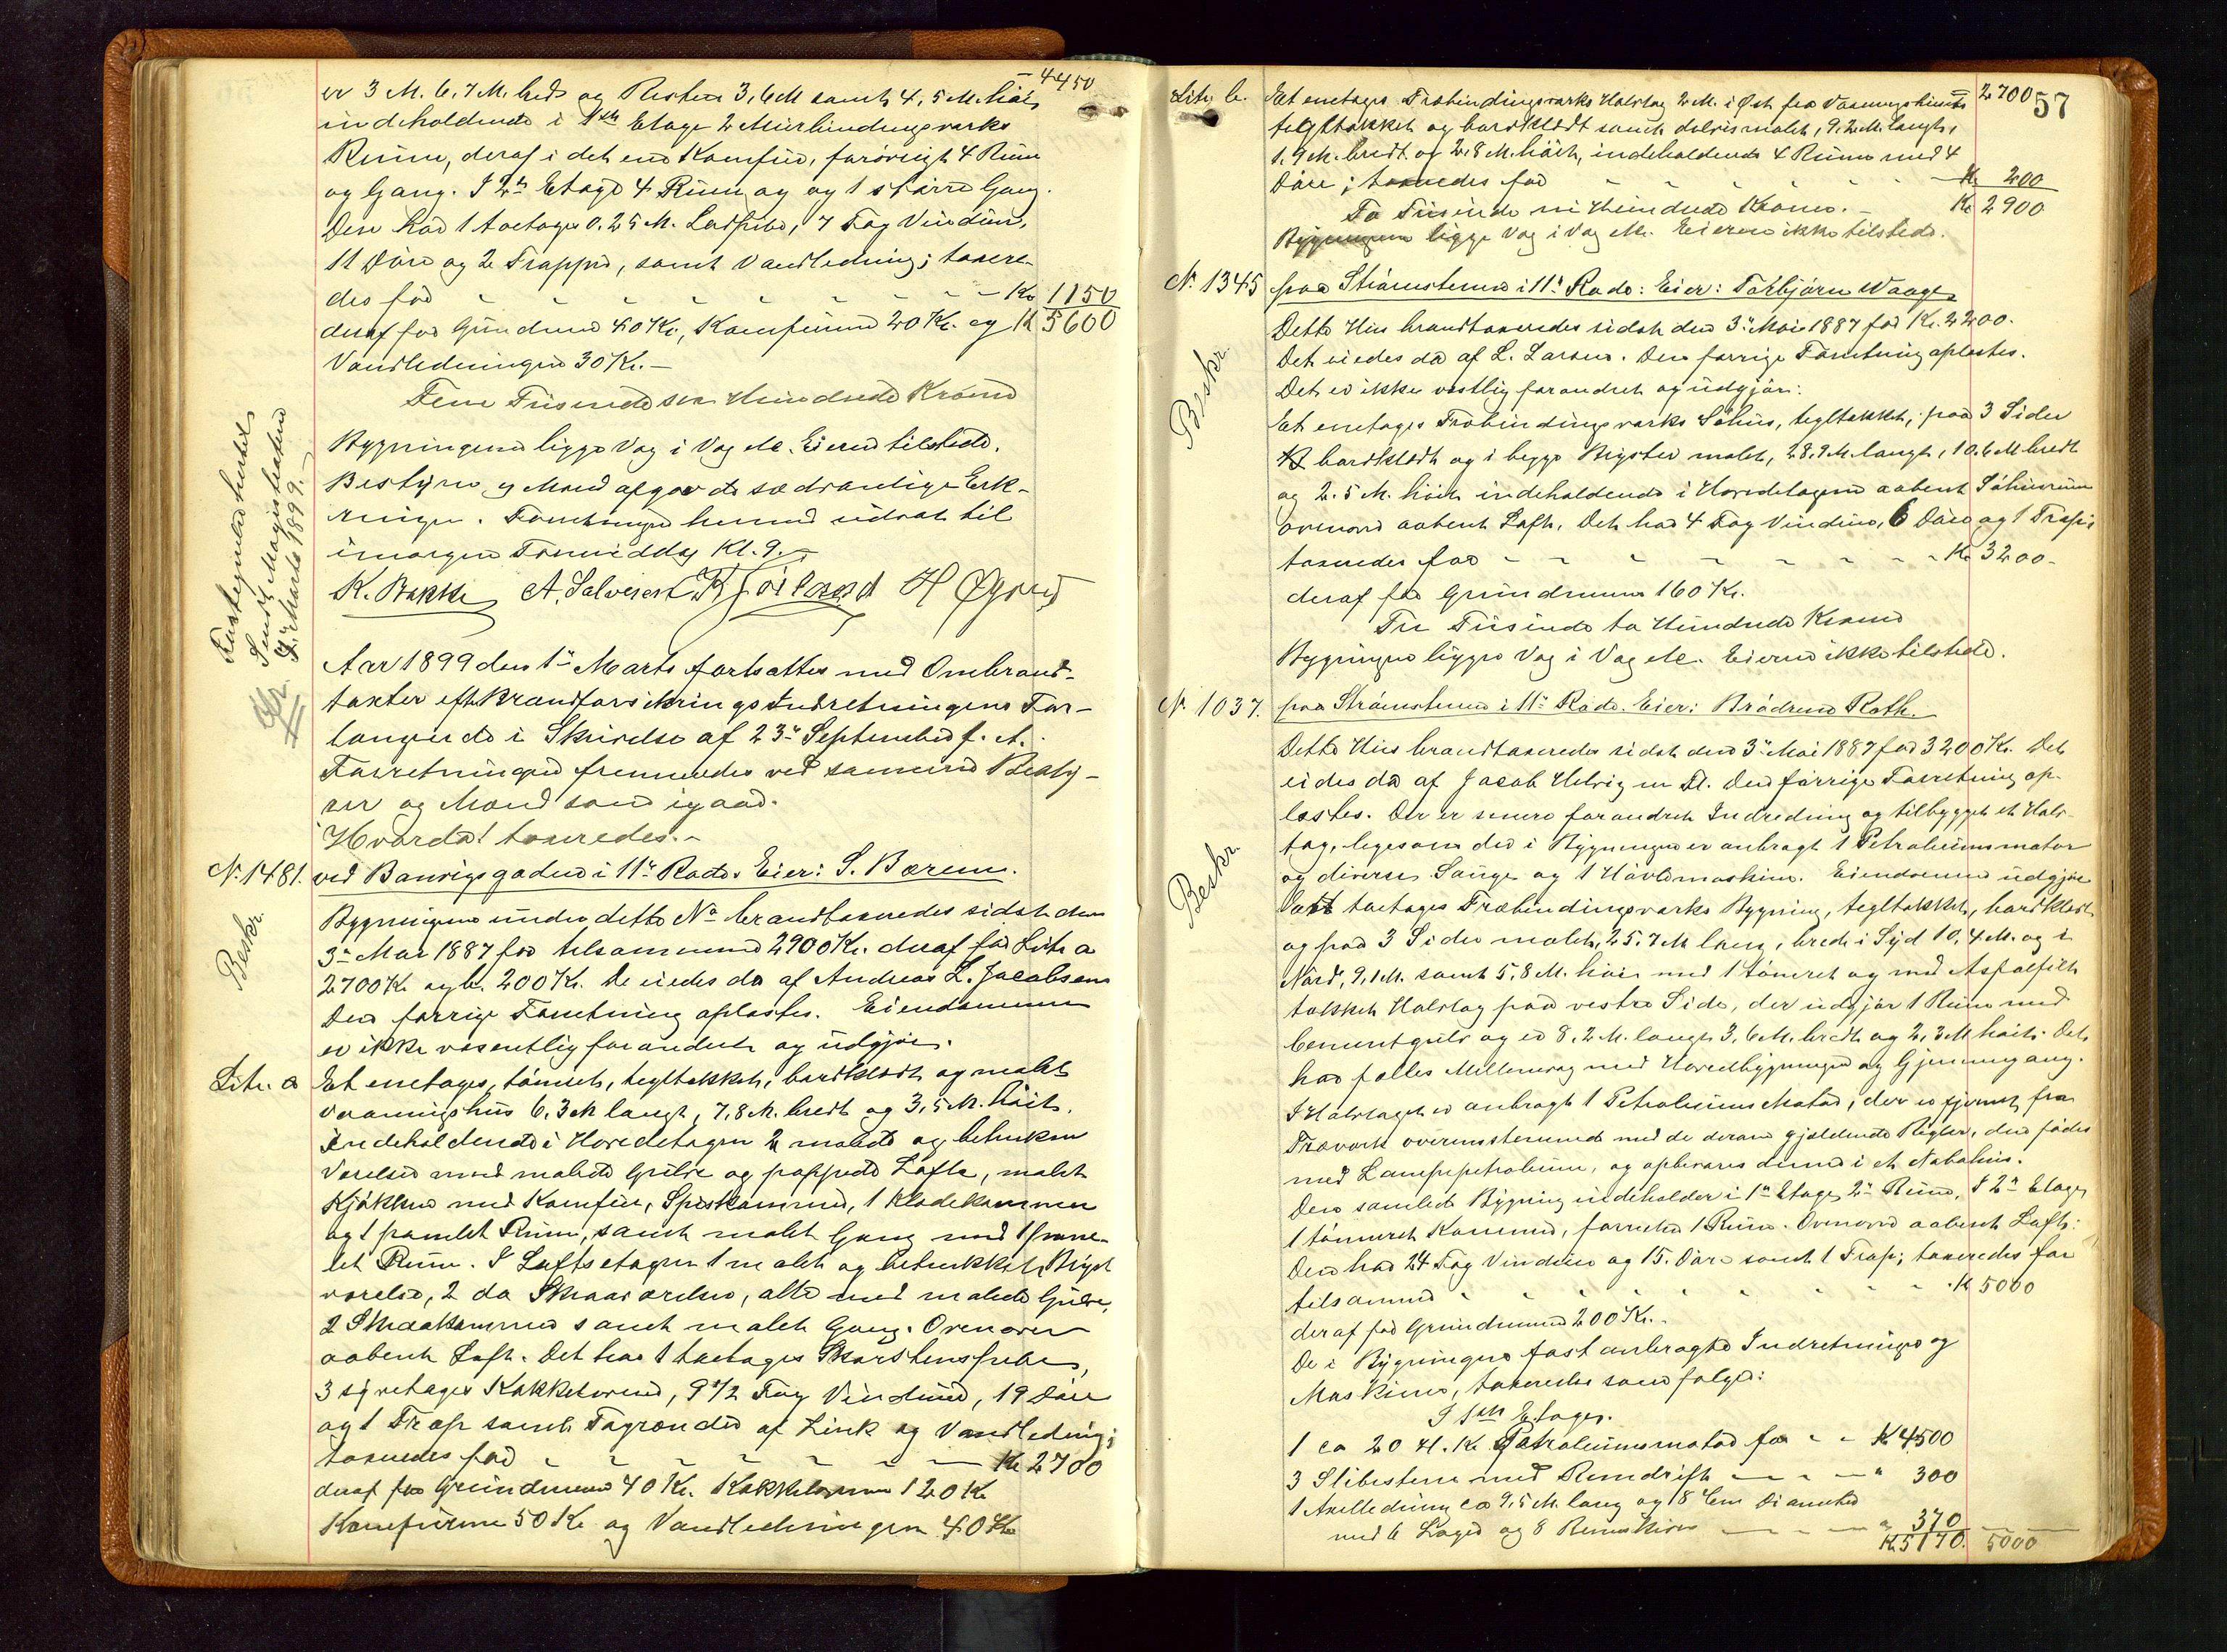 4450
er 3 M. 6,7 M. bred og Resten 3,6 M samt 4,5 M. høi,
indeholdende i 1ste Etage 2 Murbindingsværks
Rum, deraf i det ene Komfur, forøvrigt 4 Rum
og Gang. I 2den Etage 4 Rum og 1 større Gang.
Den har 1 toetages 0.25 M. Ladpibe, 7 Fag Vinduer,
11 Døre og 2 Trapper, samt Vandledning; taxere-
des for - - - Kr. 1150
deraf for Grunden 40 Kr., Komfuren 20 Kr. og K 5600
Vandledningen 30 Kr. —
Fem Tusinde sex Hundrede Kroner
Bygningerne ligge Væg i Væg etc. Eieren tilstede.
Bestyrer og Mænd afgav de sædvanlige Erk-
ringer. Forretningen herved udsat til
imorgen Formiddag Kl. 9. —
K. Bakke A. Salvesen H Øgreid
Fuldegnede hertil
Sendt Magistraten
2/ Marts 1899. —
Aar 1899 den 1ste Marts fortsattes med Ombrand-
taxter efter Brandforsikringsindretningens For-
langende i Skrivelse af 23de September f. A.
Forretningen fremmedes ved samme Besty-
rer og Mænd som igaar.
Hvorda! taxeredes. —
No. 1481. ved Banevigsgaden i 11te Rode. Eier: S. Bærem.
Beskr.
Bygningerne under dette No brandtaxeredes sidst den
3de Mai 1887 for tilsammen 2900 Kr. deraf for Litr a
2700 Kr og b. 200 Kr. De eiedes da af Andreas L. Jacobsen
Den forrige Forretning oplæstes. Eiendommen
er ikke væsentlig forandret og udgjør.
Litr. a Et enetages, tømret, tegltækket, bordklædt og malet
Vaaningshus 6,3 M langt, 7,8 M. bredt og 3,5 M. høit,
indeholdende i Hovedetagen 2 malede og betrukne
Værelser med malede Gulve og pappede Lofte, malet
Kjøkken med Komfur, Spiskammer, 1 Klædekammer
og 1 panelet Rum, samt malet Gang med 1 pane-
let Rum. I Loftsetagen 1 malet og betrukket Bryst
værelse, 2 do Skraaværelser, alle med malede Gulve,
2 Skraakammer samt malet Gang. Ovenover
aabent Loft. Det har 1 toetages Skorstenspibe,
3 syvetages Kakkelovne, 9 1/2 Fag Vinduer, 19 Døre
og 1 Trap samt Tagrender af Zink og Vandledning;
taxeredes for - - - Kr 2700
deraf for Grunden 40 Kr. Kakkelovnene 120 Kr
Komfuren 50 Kr og Vandledningen 40 Kr
57
2700
Litr. b. Et enetages Træbindingsværks Halvtag 2 M. i Øst fra Vaaningshuset
tegltækket og bordklædt samt delvis malet, 9.2 M. langt,
1.9 M. bredt og 2.8 M. høit, indeholdende 4 Rum med 4
Døre; taxeredes for - - - Kr. 200
To Tusinde ni Hundrede Kroner. — Kr 2900
Bygningerne ligge Væg i Væg etc. Eieren ikke tilstede.
No. 1345 paa Strømstenene i 11te Rode: Eier: Torbjørn Waage.
Beskr.
Dette Hus brandtaxeredes sidst den 3de Mai 1887 for Kr. 2200.
Det eiedes da af L. Larsen. Den forrige Forretning oplæstes.
Det er ikke væsentlig forandret og udgjør:
Et enetages Træbindingsværks Søhus, tegltækket, paa 3 Sider
bordklædt og i begge Bryster malet, 28,9 M. langt, 10.6 M bredt
og 2.5 M. høit indeholdende i Hovedetagen aabent Søhusrum
ovenover aabent Loft. Det har 4 Fag Vinduer, 6 Døre og 1 Trap;
taxeredes for - - - Kr 3200 -
deraf for Grundmuren 160 Kr.
Tre Tusinde to Hundrede Kroner
Bygningen ligger Væg i Væg etc. Eieren ikke tilstede.
No. 1037. paa Strømstenene i 11te Rode. Eier: Brødrene Roth. —
Beskr.
Dette Hus brandtaxeredes sidst den 3de Mai 1887 for 3200 Kr. Det
eiedes da af Jacob Helvig m Fl. Den forrige Forretning op-
læstes. Der er senere forandret Indredning og tilbygget et Halv-
tag, ligesom der i Bygningen er anbragt 1 Petroleumsmotor
og diverse Sauge og 1 Høvlemaskine. Eiendommen udgjør
toetages Træbindingsværks Bygning, tegltækket, bordklædt
og paa 3 Sider malet, 25.7 M lang, bred i Syd 10,4 M. og i
Nord, 9,1 M. samt 5,8 M. høi med 1 tømret og med Asfaltfilt
tækket Halvtag paa vestre Side, der udgjør 1 Rum med
Cementgulv og er 8,2 M. langt 3,6 M. bredt og 2,3 M høit. Det
har fælles Mellemvæg med Hovedbygningen og Gjennemgang.
I Halvtaget er anbragt 1 Petroleums Motor, der er fjernet fra
Træværk overensstemmende med de derom gjældende Regler, den fødes
med Lampepetroleum, og opbevares denne i et Nabohus.
Den samlede Bygning indeholder i 1ste Etage 2 Rum, I 2den Etage
1 tømmeret Kammer, forresten 1 Rum. Ovenover aabent Loft:
Den har 24 Fag Vinduer og 15 Døre samt 1 Trap; taxeredes for
tilsammen - - - K 5000
deraf for Grundmuren 200 Kr. -
De i Bygningen fast anbragte Indretninger og
Maskiner, taxeredes som følger:
I 1ste Etage.
1 ca 20 H. K. Petroleumsmotor for - - K 4500
3 Slibestene med Remdrift — - — " 300
1 Axelledning ca 9,5 M. lang og 18 Cm Diameter
med 6 Lager og 8 Remskiver — — - — " 370
K. 5170. 5000